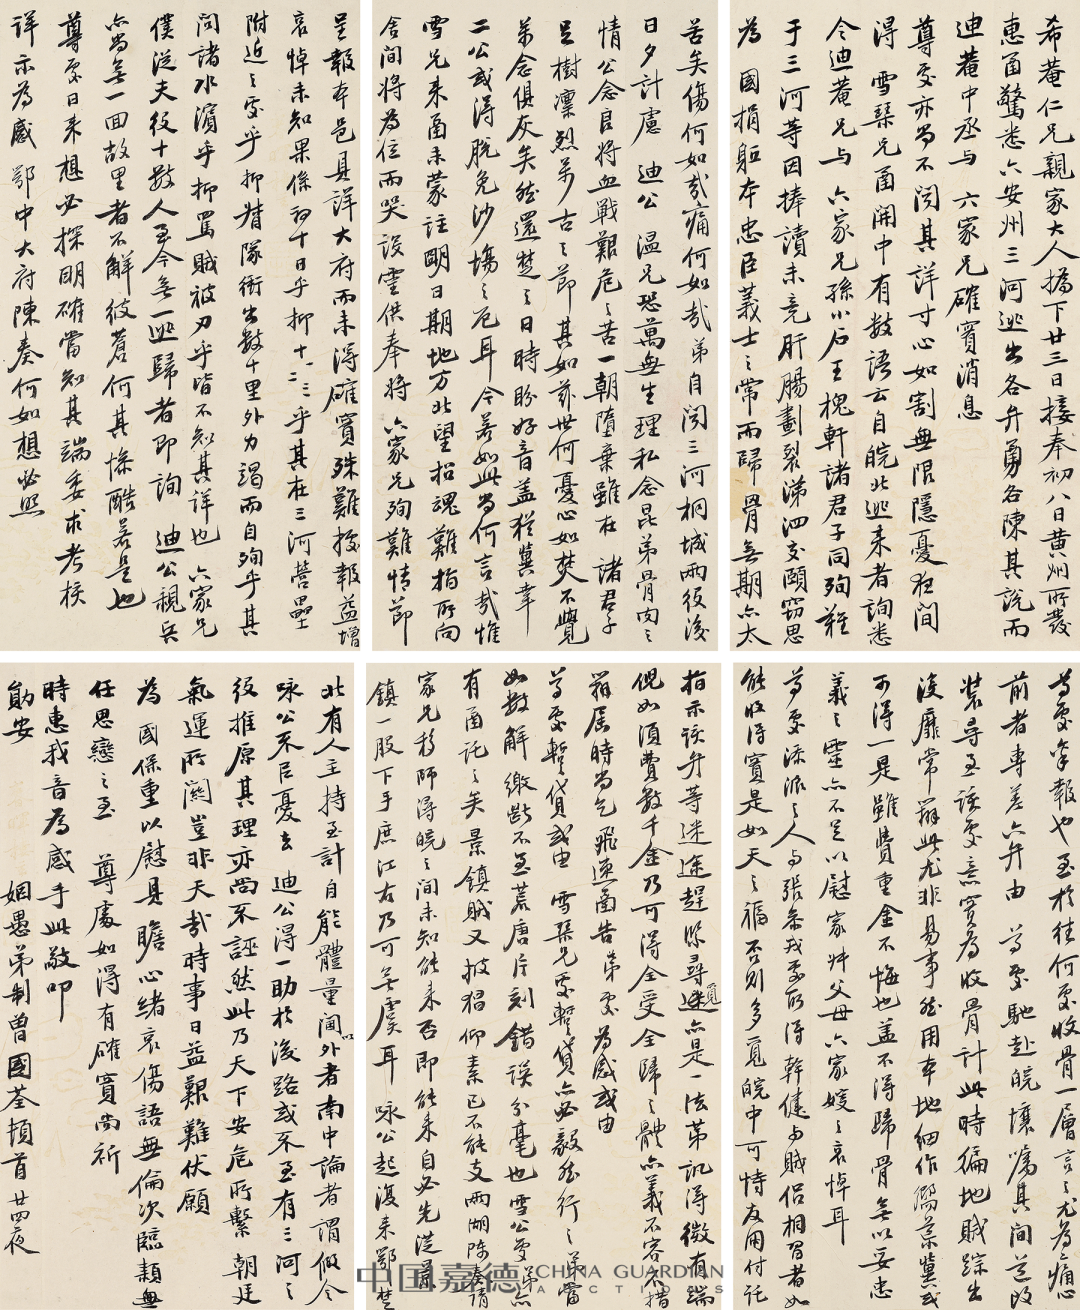 希菴仁兄親家大人撝下廿三日接奉初八日黄州所發
惠函驚悉六安州三河逃出各弁勇各陳其說而
迪菴中丞与 六家兄確實消息
尊處亦尚不闻其詳寸心如割無限隱憂夜间
得 雪琴兄函開中有数語云自皖北逃来者詢悉
今迪菴兄与 六家兄孫小石王槐軒諸君子同殉難
于三河等因捧讀未竟肝腸劃裂涕泗交頤窃思
為 國捐軀本忠臣義士之常而歸骨無期亦太
苦矣傷何如哉痛何如哉弟自闻三河桐城兩役後
日夕計慮 迪公 温兄恐萬無生理私念昆弟骨肉之
情公念良将血戰艱危之苦一朝墮棄雖在 諸君子
足樹凛烈万古之節其如茲世何憂心如焚不覺
萬念俱灰矣然還楚之日時盼好音盖猶冀幸
二公或得脱免沙塲之厄耳今若如此尚何言哉惟
雪兄来函未蒙註明日期地方北望招魂難指所向
舍间将為位而哭設靈供奉将 六家兄殉難情節
呈報本邑具詳大府而未得確實殊難摭報益增
哀悼未知果係初十日乎抑十一二三乎其在三河營壘
附近之處乎抑督隊衝出数十里外力竭而自殉乎其
问諸水濱乎抑罵賊被刃乎皆不知其詳也 六家兄
僕從夫役十数人至今無一逃歸者即詢 迪公親兵
亦尚無一回故里者不解彼蒼何其慘酷若是也
尊處日来想必探明確當知其端委求考核
詳示為感 鄂中大府陳奏何如想必照
尊處報也至於往何處收骨一層言之尤為痛心
前者專差六弁由 尊處馳赴皖壤嘱其间道改
裝尋至該處意實為收骨計此時徧地賊踪出
没靡常辦此尤非易事然用本地細作購募冀或
可得一是雖費重金不悔也盖不得歸骨無以妥忠
義之靈亦不足以慰家叔父母六家嫂之哀悼耳
尊處添派之人与張参戎處所得幹健与賊侣相習者如
能收得實是如天之福否則多覓皖中可恃友用付託
指示該弁等迷途趕緊尋覓亦是一法弟訊得微有端
倪如須費数千金乃可得全受全歸之體亦義不容不措
辦屆時尚乞飛速函告弟處為感或由
尊處暫貸或由 雪琴兄處暫貸亦必毅然行之弟當
如数解繳断不至荒唐片刻錯誤分毫也雪公處弟亦
有函託之矣景鎮賊又披猖仰素已不能支兩湖陈奏請
家兄移師潯皖之间未知能来否即能来自必先從景
鎮一股下手庶江右乃可無虞耳 咏公起復来鄂楚
北有人主持至計自能體量阃外者南中論者謂似今
咏公不足憂去 迪公得一助於後路或不至有三河之
役推原其理亦尚不誣然此乃天下安危所繫 朝廷
氣運所關豈非天哉時事日益艱難伏願
為 國保重以慰具瞻心緒哀傷語無倫次臨穎無
任思戀之至 尊處如得有確實尚祈
時惠我音為感手此敬叩
勛安 姻愚弟制曾國荃頓首廿四夜
中国嘉德 CHINA GUARDIAN
AUCTIONS